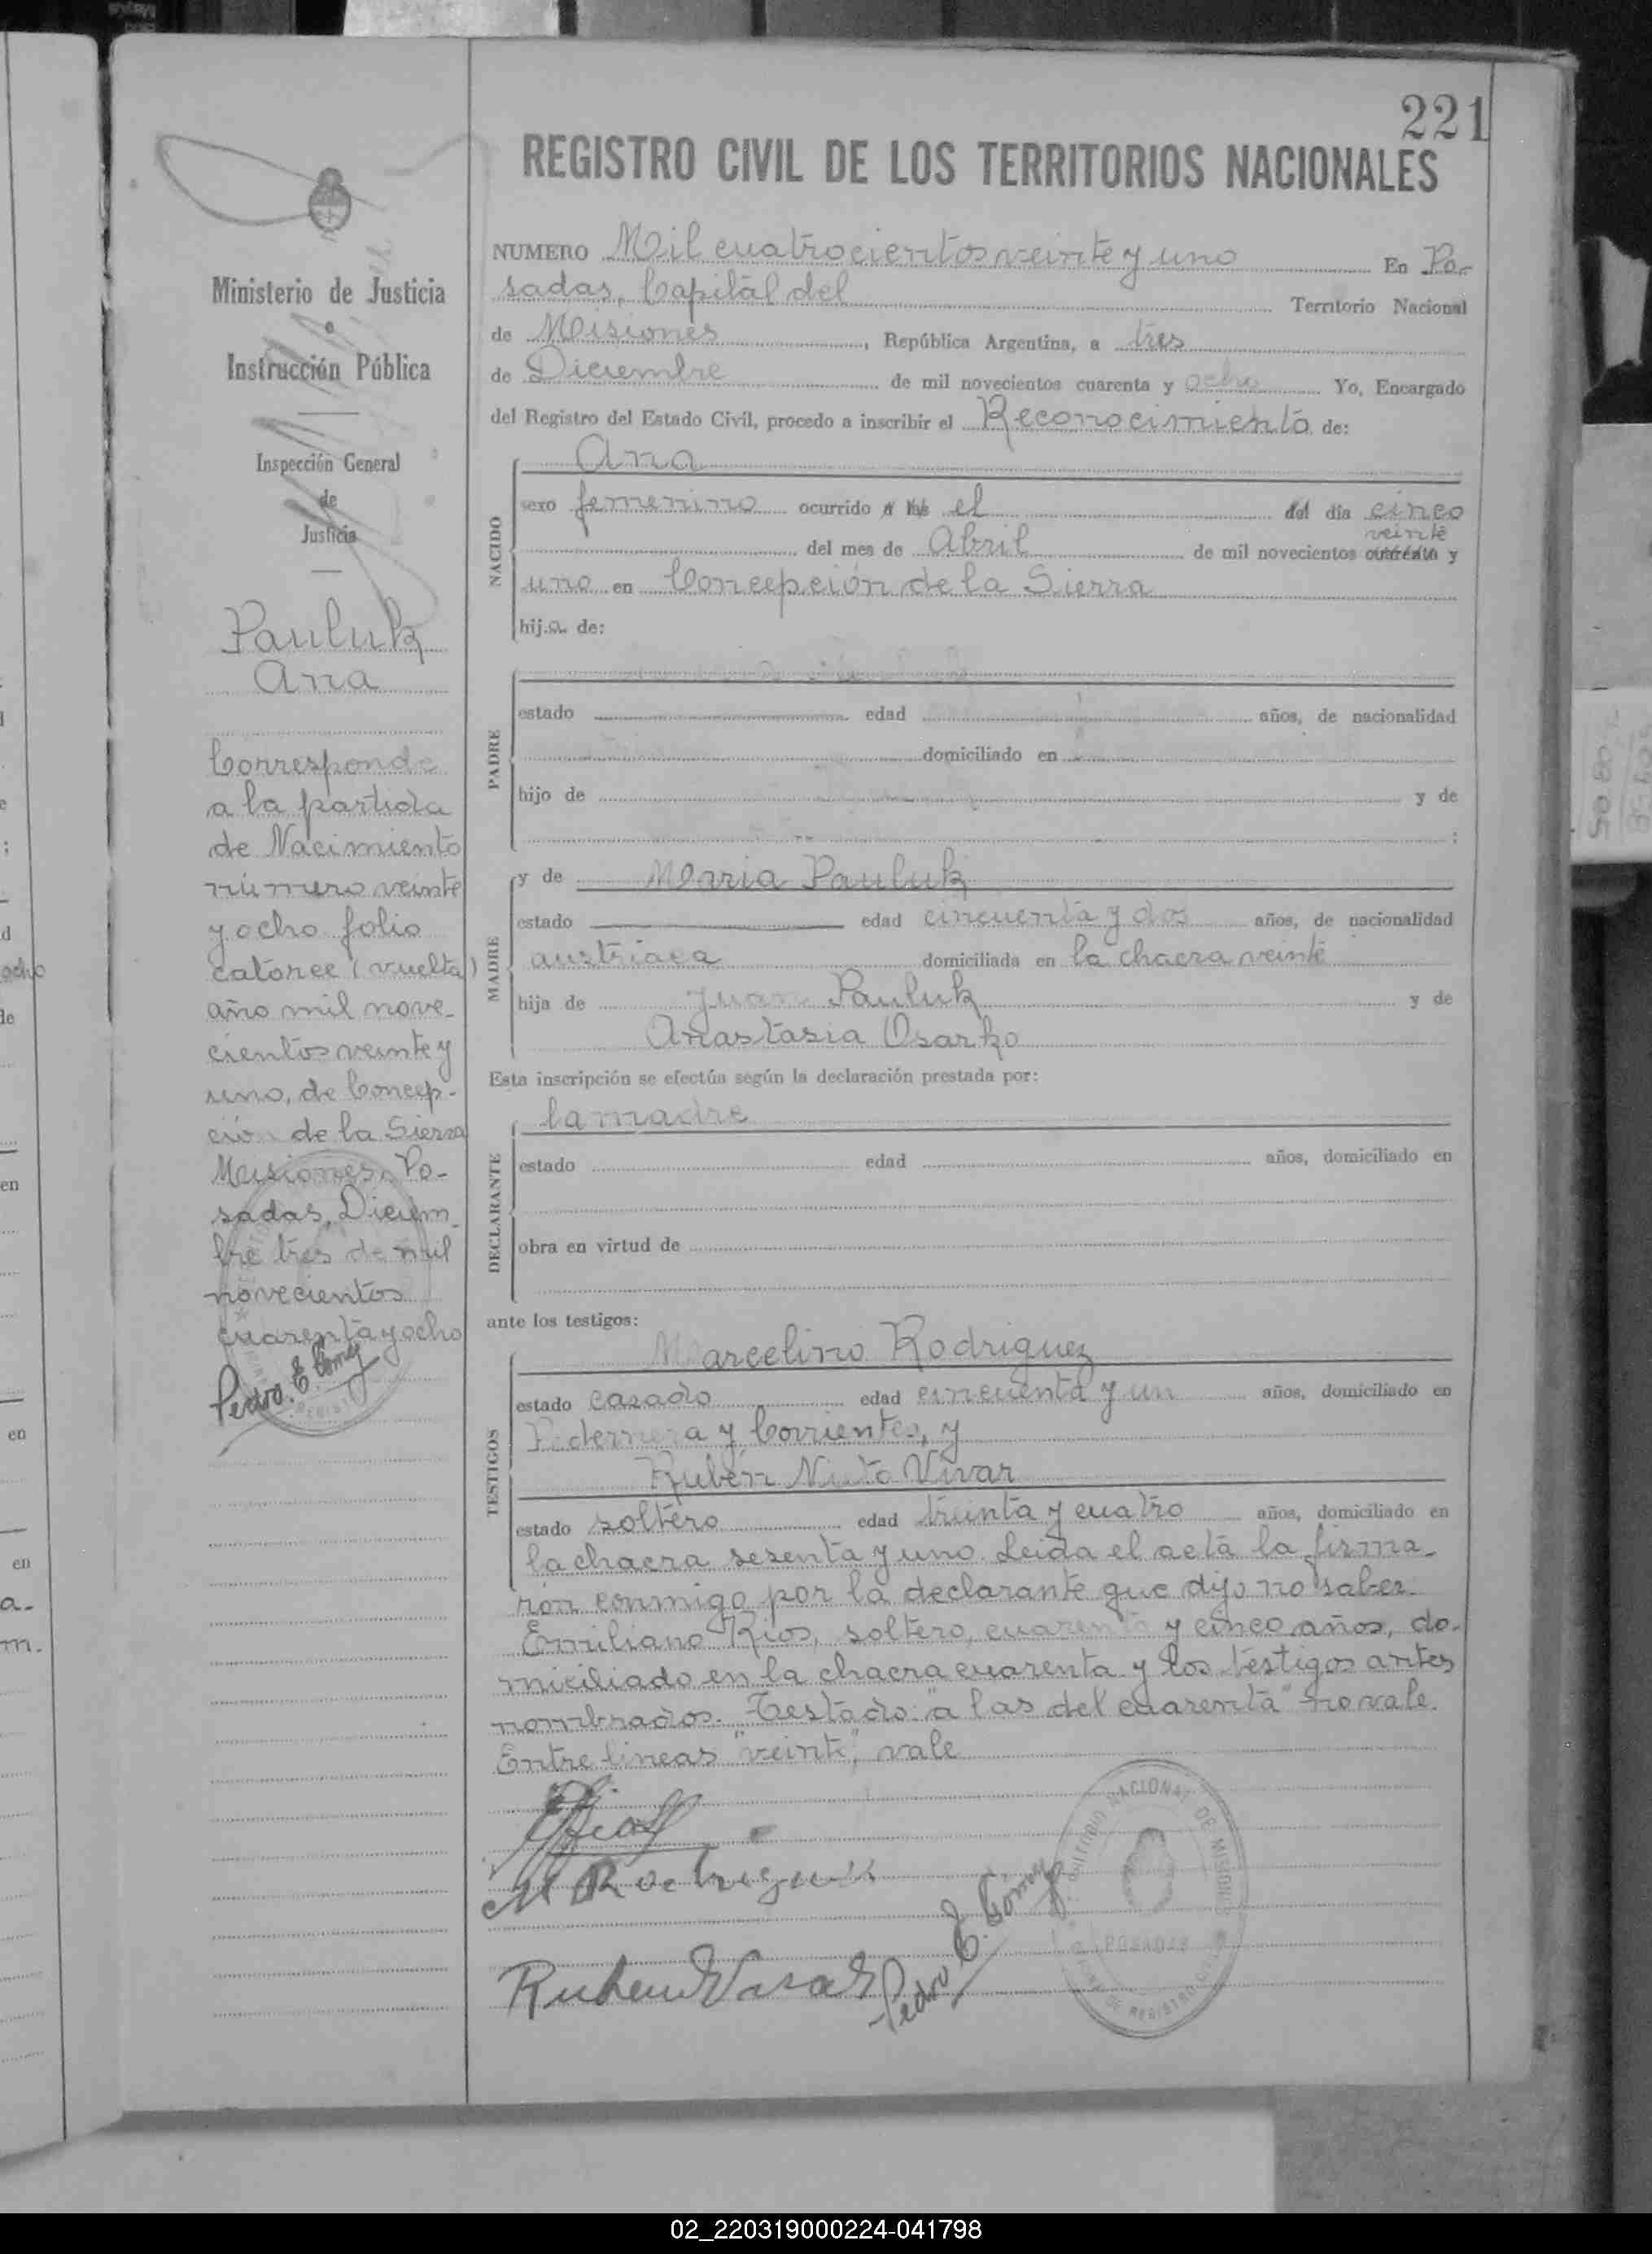 221
REGISTRO CIVIL DE LOS TERRITORIOS NACIONALES
Ministerio de Justicia
e
Instrucción Pública
Inspección General
de
Justicia
Pauluk
Ana
Corresponde
a la partida
de Nacimiento
número veinte
y ocho folio
catorce (vuelta)
año mil nove-
cientos veinte y
uno, de Concep-
ción de la Sierra
Misiones. Po-
sadas, Diciem-
bre tres de mil
novecientos
cuarenta y ocho
Pedro E. Gómez
NUMERO Mil cuatrocientos veinte y uno En Po-
sadas, Capital del Territorio Nacional
de Misiones, República Argentina, a tres
de Diciembre de mil novecientos cuarenta y ocho Yo, Encargado
del Registro del Estado Civil, procedo a inscribir el Reconocimiento de:
NACIDO
Ana
sexo femenino ocurrido a las el del día cinco
veinte
del mes de Abril de mil novecientos cuarenta y
uno en Concepción de la Sierra
hija de:
PADRE
estado edad años, de nacionalidad
domiciliado en
hijo de y de
;
MADRE
y de Maria Pauluk
estado edad cincuenta y dos años, de nacionalidad
austriaca domiciliada en la chacra veinte
hija de Juan Pauluk y de
Anastasia Osarko
Esta inscripción se efectúa según la declaración prestada por:
DECLARANTE
la madre
estado edad años, domiciliado en
obra en virtud de
ante los testigos:
TESTIGOS
Marcelino Rodriguez
estado casado edad cincuenta y un años, domiciliado en
Pedernera y Corrientes, y
Rubén Nieto Vivar
estado soltero edad treinta y cuatro años, domiciliado en
la chacra sesenta y uno. Leida el acta la firma-
ron conmigo por la declarante que dijo no saber
Emiliano Rios, soltero, cuarenta y cinco años, do-
miciliado en la chacra cuarenta y los testigos antes
nombrados. Testado: "a las del cuarenta" no vale.
Entre lineas "veinte", vale
M Rodriguez
Ruben Vivar
Pedro E. Gómez
TERRITORIO NACIONAL DE MISIONES
POSADAS
OFICINA DE REGISTRO CIVIL
02_220319000224-041798